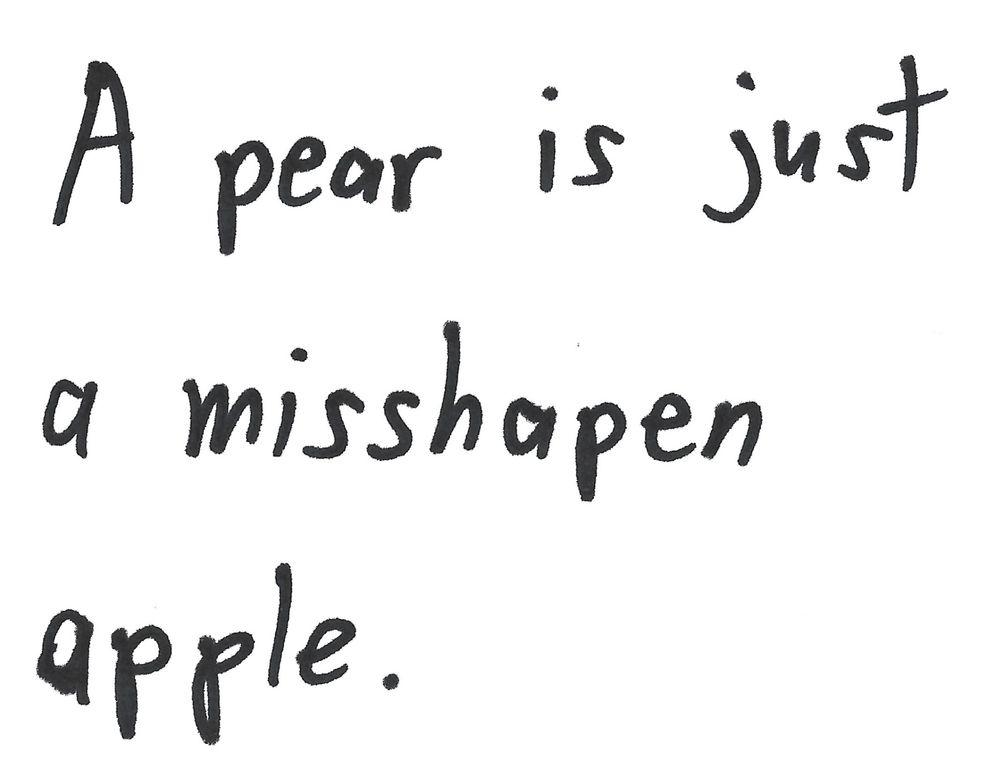 A pear is just
a misshapen
apple.